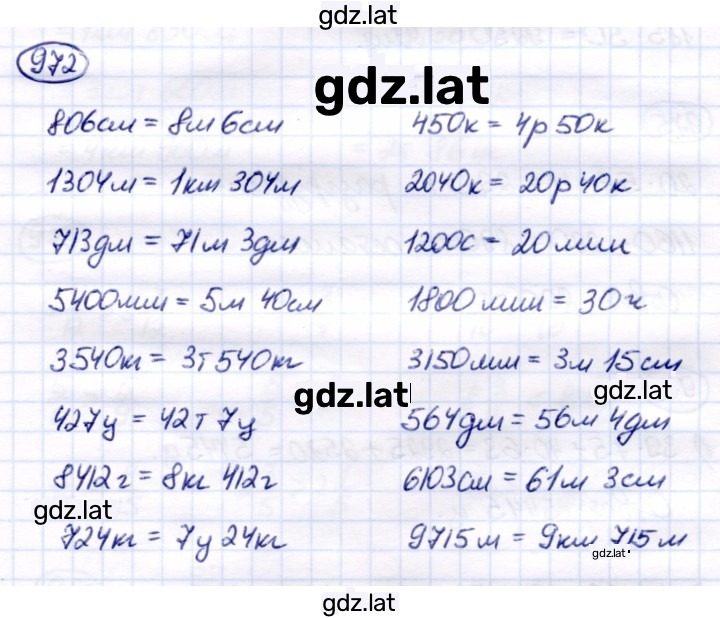 gdz.lat
972
gdz.lat
806см = 8м 6см 450к = 4р 50к
1304м = 1км 304м 2040к = 20р 40к
713дм = 71м 3дм 1200с = 20мин
5400мм = 5м 40см 1800мин = 30ч
3540кг = 3т 540кг 3150мм = 3м 15см
gdz.lat gdz.lat
427ц = 42т 7ц 564дм = 56м 4дм
8412г = 8кг 412г 6103см = 61м 3см
gdz.lat
724кг = 7ц 24кг 9715м = 9км 715м
gdz.lat
gdz.lat